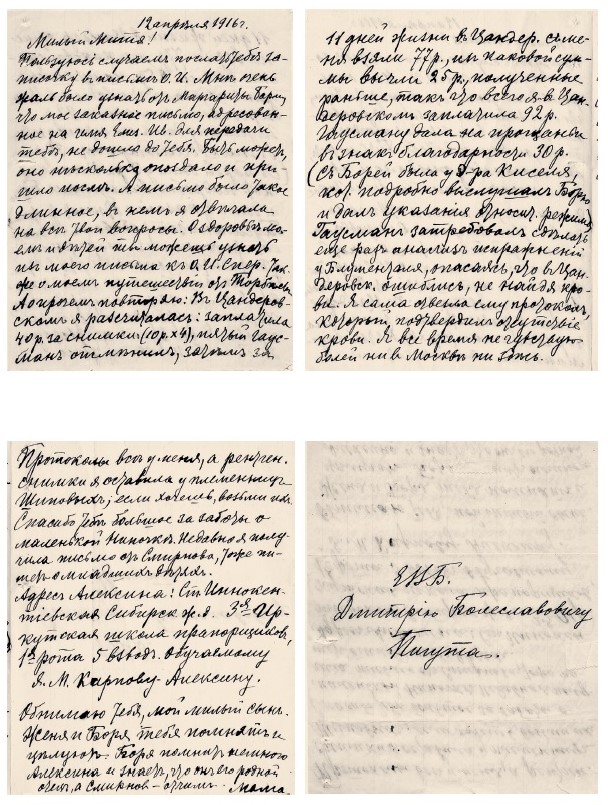 12 апреля 1916 г.
Милый Митя!
Пользуюсь случаем послать тебе за-
писочку в письме О. И. Мнѣ очень
жаль было узнать отъ Маргариты Борис.
что мое заказное письмо, адресован-
ное на имя Евг. Ив. для передачи
тебѣ, не дошло до тебя. Быть можетъ,
оно нѣсколько опоздало и при-
шло послѣ. А письмо было такое
длинное, въ немъ я отвѣчала
на всѣ твои вопросы. О здоровьѣ мо-
емъ и дѣтей ты можешь узнать
изъ моего письма къ О. И. Спер. Так-
же о моемъ путешествіи отъ
А о прочемъ повторяю: Въ Цандеров-
скомъ я расчиталась: заплатила
40 р. за снимки (10 р. х 4), пятый Гаус-
манъ отмѣнилъ, зачѣмъ за
11 дней жизни въ Цандер. съ ме-
ня взяли 77 р., изъ каковой сум-
мы вычли 25 р., полученные
раньше, такъ что всего я въ Цан-
деровскомъ заплатила 92 р.
Гаусману дала на прощаньи
въ знакъ благодарности 30 р.
(Съ Борей была у д-ра Киселя,
кот. подробно выслушалъ Борю
и далъ указания относит. режима)
Гаусманъ затребовалъ сдѣлать
еще разъ анализъ испражненій
у Блументаля, опасаясь, что въ Цан-
деровск. ошиблись, не найдя кро-
ви. Я сама отвезла ему протоколъ,
который подтвердилъ отсутствіе
крови. Я все время не чувствую
болей ни в Москвѣ ни здѣсь.
Протоколы всѣ у меня, а рентген.
снимки я оставила у племянницъ
Шиповыхъ; если хочешь, возьми ихъ.
Спасибо тебѣ большое за заботы о
маленькой Ниночкѣ. Недавно я полу-
чила письмо отъ Смирнова, тоже пи-
шетъ о младшихъ дѣтяхъ.
Адресъ Алексина: Ст. Иннокен-
тіевская Сибирск. ж. д. 3я Ир-
кутская школа прапорщиковъ,
1я рота 5 взводъ. Обучаемому
Я. М. Карпову-Алексину.
Обнимаю тебя, мой милый сынъ.
Женя и Боря тебя помнятъ и
цѣлуютъ. Боря помнитъ немного
Алексина и знаетъ, что онъ его родной
отецъ, а Смирновъ - отчимъ. Мама.
ЕВБ.
Дмитрію Болеславовичу
Пигута.